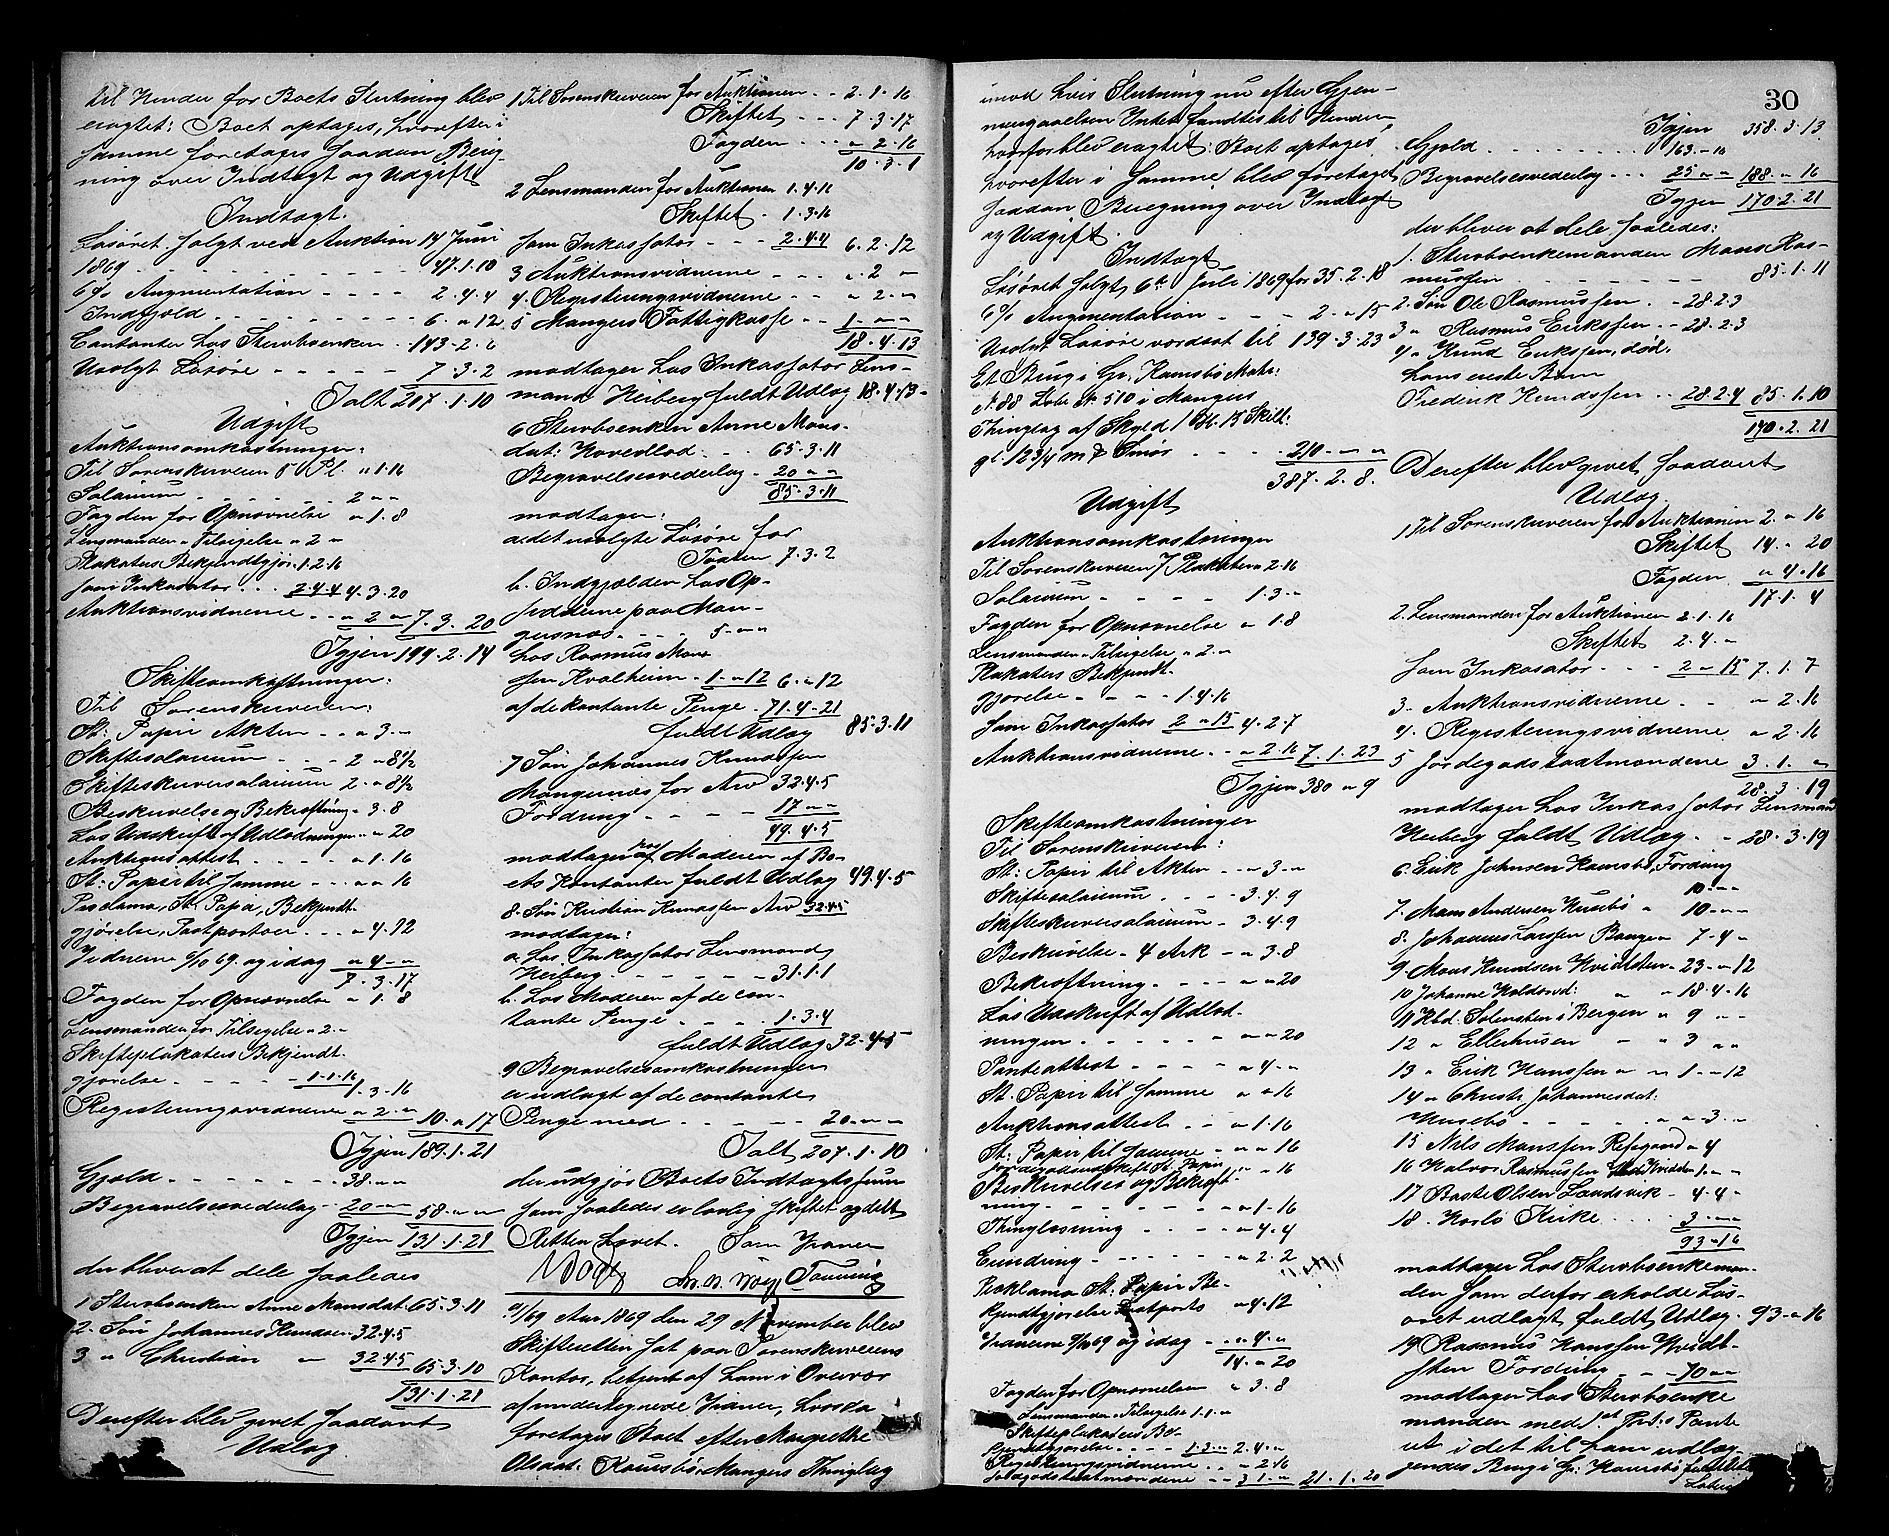 til Hinder for Boets Slutning blev
eragtet: Boet optages, hvorefter i
samme foretages saadan Bereg-
ning over Indtægt og Udgift
Indtægt.
Løsøret solgt ved Auktion 14 Juni
1869 - - - 47.1.10
6% Augmentation - - - 2.4.4
Indgjæld - - - 6.„.12
Contanter hos Stervboenken - 143.2.6
Usolgt Løsøre - - - 7.3.2
Ialt 207.1.10
Udgift
Auktionsomkostninger:
Til Sorenskriveren 5 Pl. „.1.16
Salarium - - - 2.„.„
Fogden for Opnævnelse „.1.8
Lensmanden „ Tilsigelse „.2.„
Plakaters Bekjendtgjør. 1.2.16
som Inkasator . . . 2.4.4 4.3.20
Auktionsvidnerne . . „.2.„ 7.3.20
Igjen 199.2.14
Skifteomkostninger:
Til Sorenskriveren:
St: Papir Akten . . „.3.„
Skiftesalarium - - - 2.„.8½
Skifteskriversalarium 2.„.8½
Beskrivelse og Bekræftning „.3.8
Løs Udskrift af Udlodningen „.„.20
Auktionsattest - - - „.1.16
St: Papir til samme - - „.„.16
Proclama, St: Papir, Bekjendt-
gjørelse, Postporto - - - „.4.12
Vidnerne 9/10 69. og idag „.4.„
7.3.17
Fogden for Opnævnelse „.1.8
Lensmanden for Tilsigelse „.2.„
Skifteplakaters Bekjendt-
gjørelse - - - 1.1.16
1.3.16
Registeringsvidnerne „.2.„ 10.„.17
Igjen 189.1.21
Gjæld - - - 38.„.„
Begravelsesvederlag - 20.„.„ 58.„.„
Igjen 131.1.21
der bliver at dele saaledes
1 Stervboenken Anne Monsdat. 65.3.11
2. Søn Johannes Knudsen 32.4.5
3 „ Christian „ 32.4.5 65.3.10
131.1.21
Derefter blev givet saadant
Udlæg
1 Til Sorenskriveren for Auktionen . . 2.1.16
Skiftet - - - 7.3.17
Fogden - - - „.2.16
10.3.1
2 Lensmanden for Auktionen 1.4.16
Skiftet . 1.3.16
som Inkassator - - - 2.4.4 6.2.12
3 Auktionsvidnerne - - - „.2.„
4. Registeringsvidnerne - - „.2.„
5 Mangers Fattigkasse - - 1.„.„
18.4.13
modtager hos Inkassator Lens-
mand Heiberg fuldt Udlæg 18.4.13
6 Stervboenken Anne Mons-
dat: Hovedlod - - 65.3.11
Begravelsesvederlag - 20.„.„
85.3.11
modtager:
a. det usolgte Løsøre for
Taxten 7.3.2
b. Indgjælden hos Op-
sidderne paa Man-
gersnæs - - - 5.„.„
hos Rasmus Mons-
sen Kvalheim - 1.„.12 6.„.12
af de kontante Penge - 71.4.21
fuldt Udlæg 85.3.11
7 Søn Johannes Knudssen
Mangersnæs for Arv 32.4.5
Fordring - - - 17.„.„
49.4.5
modtager hos Moderen af Bo-
ets Kontanter fuldt Udlæg 49.4.5
8. Søn Kristian Knudssen Arv 32.4.5
modtager:
a. hos Inkassator Lensmand
Heiberg - - - 31.1.1
b. hos Moderen af de con-
tante Penge - - 1.3.4
fuldt Udlæg 32.4.5
9 Begravelsesomkostningen
er udlagt af de contante
Penge med - - - 20.„.„
Ialt 207.1.10
der udgjør Boets Indtægtssum
som saaledes er lovlig skiftet og delt
Retten hævet. Som Vidner
Aar 1869 den 29 November blev
Skifteretten sat paa Sorenskriverens
Kontor, betjent af ham i Overvær
af undertegnede Vidner, hvorda
foretages Boet efter Margrethe
Olsdat: Ramsbø, Mangers Thinglag
30
imod hvis Slutning nu efter Gjen-
nemgaaelsen Intet fandtes til Hinder,
hvorfor blev eragtet: Boet optages
hvorefter i samme blev foretaget
saadan Beregning over Indtægt
og Udgift.
Indtægt
Løsøret solgt 6te Juli 1869 for 35.2.18
6% Augmentation - - - 2.„.15
Usolgt Løsøre vordert til 139.3.23
Et Brug i Gr. Ramsbø Matr:
N. 88 Løbe N. 510 i Mangers
Thinglag af Skyld 1 Ort. 13 Skill:
gl. 1 23/4 m℔ Smør - - - 210.„.„
387.2.8.
Udgift
Auktionsomkostninger
Til Sorenskriveren 7 Plakater „.2.16
Salarium - - - 1.3.„
Fogden for Opnævnelse „.1.8
Lensmanden „ Tilsigelse „.2.„
Plakaters Bekjendt-
gjørelse - - - 1.4.16
som Inkassator 2.„.15 4.2.7
Auktionsvidnerne - - „.2.16 7.1.23
Igjen 380.„.9
Skifteomkostninger
Til Sorenskriveren:
St: Papir til Akten - - „.3.„
Skiftesalarium - - - 3.4.9
Skifteskriversalarium - 3.4.9
Beskrivelse - 4 Ark - „.3.8
Bekræftning - - - „.„.20
Løs Udskrift af Udlod-
ningen - - - „.„.20
Panteattest - - - „.4.„
St: Papir til samme „.„.16
Auktionsattest - - „.1.16
St: Papir til samme - - „.„.16
„.„.16
Beskrivelses og Bekræft-
ning - - - „.1.16
Thinglæsning - - - „.4.4
- - - „.2.2
Proklama St: Papir Be-
kjendtgjørelse Postporto „.4.12
Vidnerne 9/10 69 og idag - - „.4.„
14.„.20
Fogden for Opnævnelsen „.3.8
Lensmanden „ Tilsigelse 1.1.„
Skifteplakaters Be-
kjendtgjørelse - - - 1.3.„ 2.4.„
Registeringsvidnerne - - „.2.16
Jordegodstaxtmændene - - 3.1.„ 21.1.20
Igjen 358.3.13
Gjæld - - - 163.„.16
Begravelsesvederlag - - - 25.„.„ 188.„.16
Igjen 170.2.21
der bliver at dele saaledes:
1. Stervboenkemanden Mons Ras-
mussen - - - 85.1.11
2. Søn Ole Rasmussen - - 28.2.3
3 „ Rasmus Erikssen - - 28.2.3
4 „ Knud Erikssen, død.
hans eneste Barn
Frederik Knudssen - - 28.2.4 85.1.10
170.2.21
Derefter blev givet saadant
Udlæg.
1 Til Sorenskriveren for Auktionen 2.„.16
Skiftet 14.„.20
Fogden „.4.16
17.1.4
2. Lensmanden for Auktionen 2.1.16
Skiftet 2.4.„
som Inkasator - - - 2.„.15 7.1.7
3. Auktionsvidnerne - - „.2.16
4. Registeringsvidnerne „.2.16
5 Jordegodstaxtmændene 3.1.„
28.3.19
modtager hos Inkassator Lensmand
Heiberg fuldt Udlæg - - 28.3.19
6. Erik Johnsen Ramsbø, Fordring
10.„.„
7. Mons Andersen Husebø „ 10.„.„
8. Johannes Larssen Bauge „ 7.4.„
9. Mons Knudsen Hvidsten - 23.„.12
10 Johanne Haldorsd: „ „ 18.4.16
11 Hbd. Solensten i Bergen „ 9.„.„
12 „ Ellerhusen - „ 3.„.„
13 „ Erik Hanssen „ „ 1.„.12
14 „ Christi Johannesdat:
Husebø - - - „.3.„
15 Nils Monssen Risgaard „ 4
16 Halvor Rasmussen Hvidsten 1.„.„
17 Baste Olsen Landsvik - 4.4.„
18 Herlø Kirke - - - 3.„.„
93.„.16
modtager hos Stervboenkeman-
den som derfor erholder Løs-
øret udlagt fuldt Udlæg - 93.„.16
19 Rasmus Hanssen Hvidt-
sten Fordring - - - 70.„.„
modtager hos Stervboenke
manden med 1st Pr:s Pante
ret i det til ham udlæg-
gendes Brug i Gr: Ramsbø